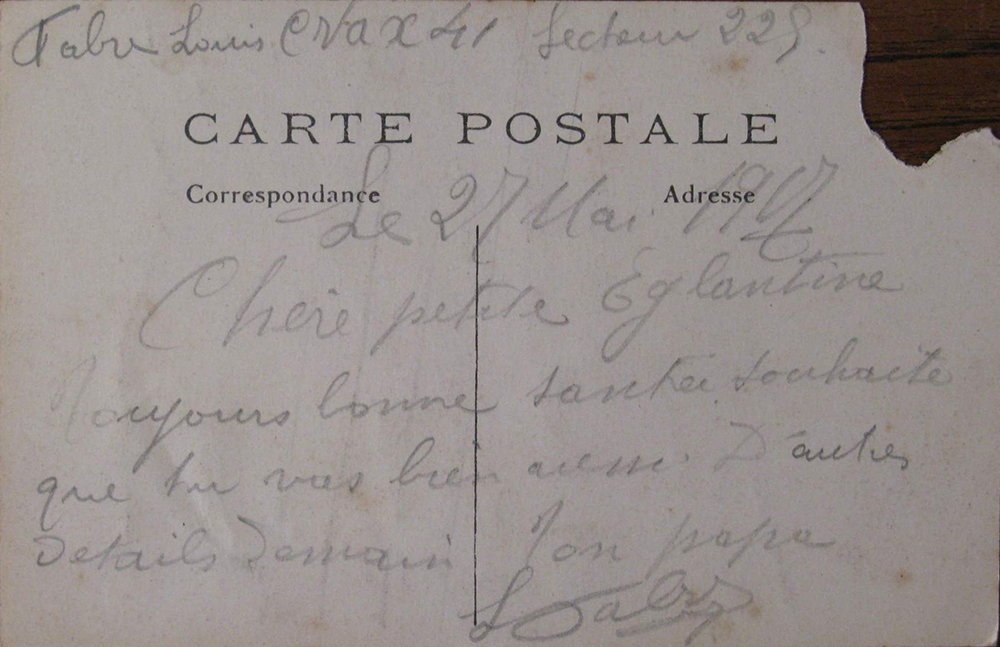 Fabre Louis CVAX 41 Secteur 225.
CARTE POSTALE
Correspondance Adresse
Le 27 Mai 1917
Chère petite Eglantine
Toujours bonne santée souhaite
que tu vas bien aussi. D'autres
Details Demain Ton papa
LFabre